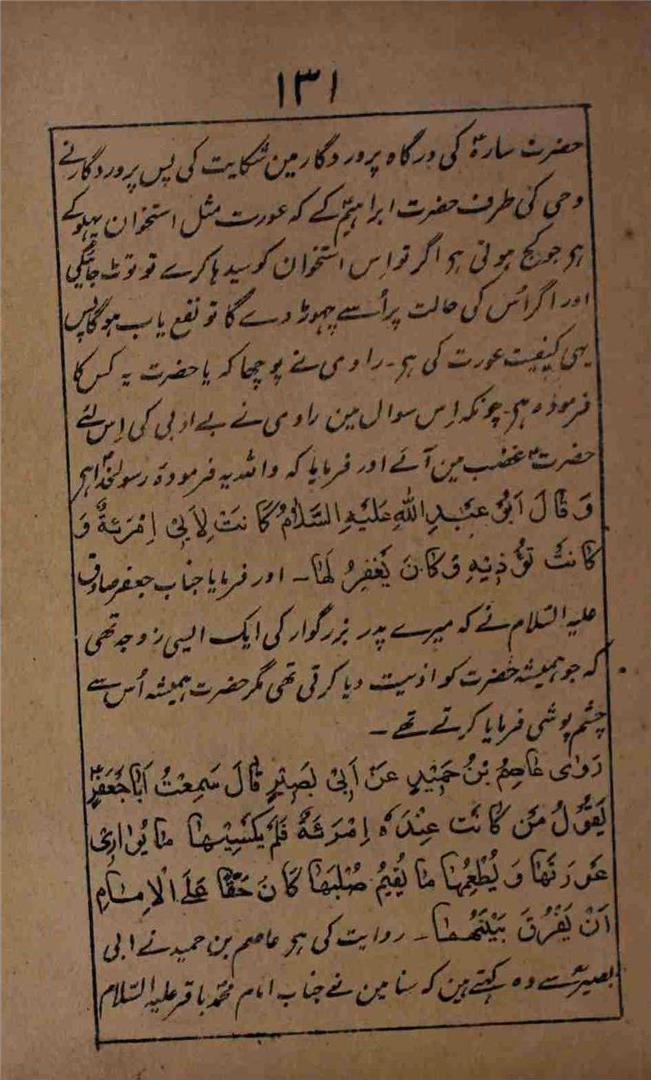 ۱۳۱
حضرت سارہؑ کی درگاہ پروردگار مین شکایت کی پس پروردگار نے
وحی کی طرف حضرت ابراہیمؑ کے کہ عورت مثل استخوان پہلو کے
ہر جو کج ہوتی ہر اگر تو اِس استخوان کو سیدہا کرے تو ٹوٹ جائیگی
اور اگر اُس کی حالت پر اُسے چہوڑ دے گا تو نفع یاب ہوگا پس
یہی کیفیت عورت کی ہر۔ راوی نے پوچھا کہ یا حضرت یہ کس کا
فرمودہ ہر۔ چونکہ اِس سوال مین راوی نے بے ادبی کی اِس لئے
حضرتؑ غضب مین آئے اور فرمایا کہ واللہ یہ فرمودۂ رسولخداؐ ہر
وَ قَالَ اَبُوْ عَبْدِ اللّٰهِ عَلَیْهِ السَّلَامُ کَانَتْ لِاَبِیْ اِمْرَئَةٌ وَ
کَانَتْ تُؤْذِیْهِ وَ کَانَ یَغْفِرُ لَهَا۔ اور فرمایا جناب جعفر صادق
علیہ السلام نے کہ میرے پدر بزرگوار کی ایک ایسی زوجہ تھی
کہ جو ہمیشہ حضرت کو اذیت دیا کرتی تھی مگر حضرت ہمیشہ اُس سے
چشم پوشی فرمایا کرتے تھے۔
رَوٰی عَاصِمُ بْنُ حُمَیْدٍ عَنْ اَبِیْ بَصِیْرٍ قَالَ سَمِعْتُ اَبَا جَعْفَرٍؑ
یَقُوْلُ مَنْ کَانَتْ عِنْدَهٗ اِمْرَئَةٌ فَلَمْ یَکْسِیْهَا مَا یُوَارِیْ
عَوْرَتَهَا وَ یُطْعِمُهَا مَا یُقِیْمُ صُلْبَهَا کَانَ حَقًّا عَلَی الْاِمَامِ
اَنْ یَفْرُقَ بَیْنَهُمَا۔ روایت کی ہر عاصم بن حمید نے ابی
بصیر سے وہ کہتے ہین کہ سنا مین نے جناب امام محمد باقر علیہ السلام